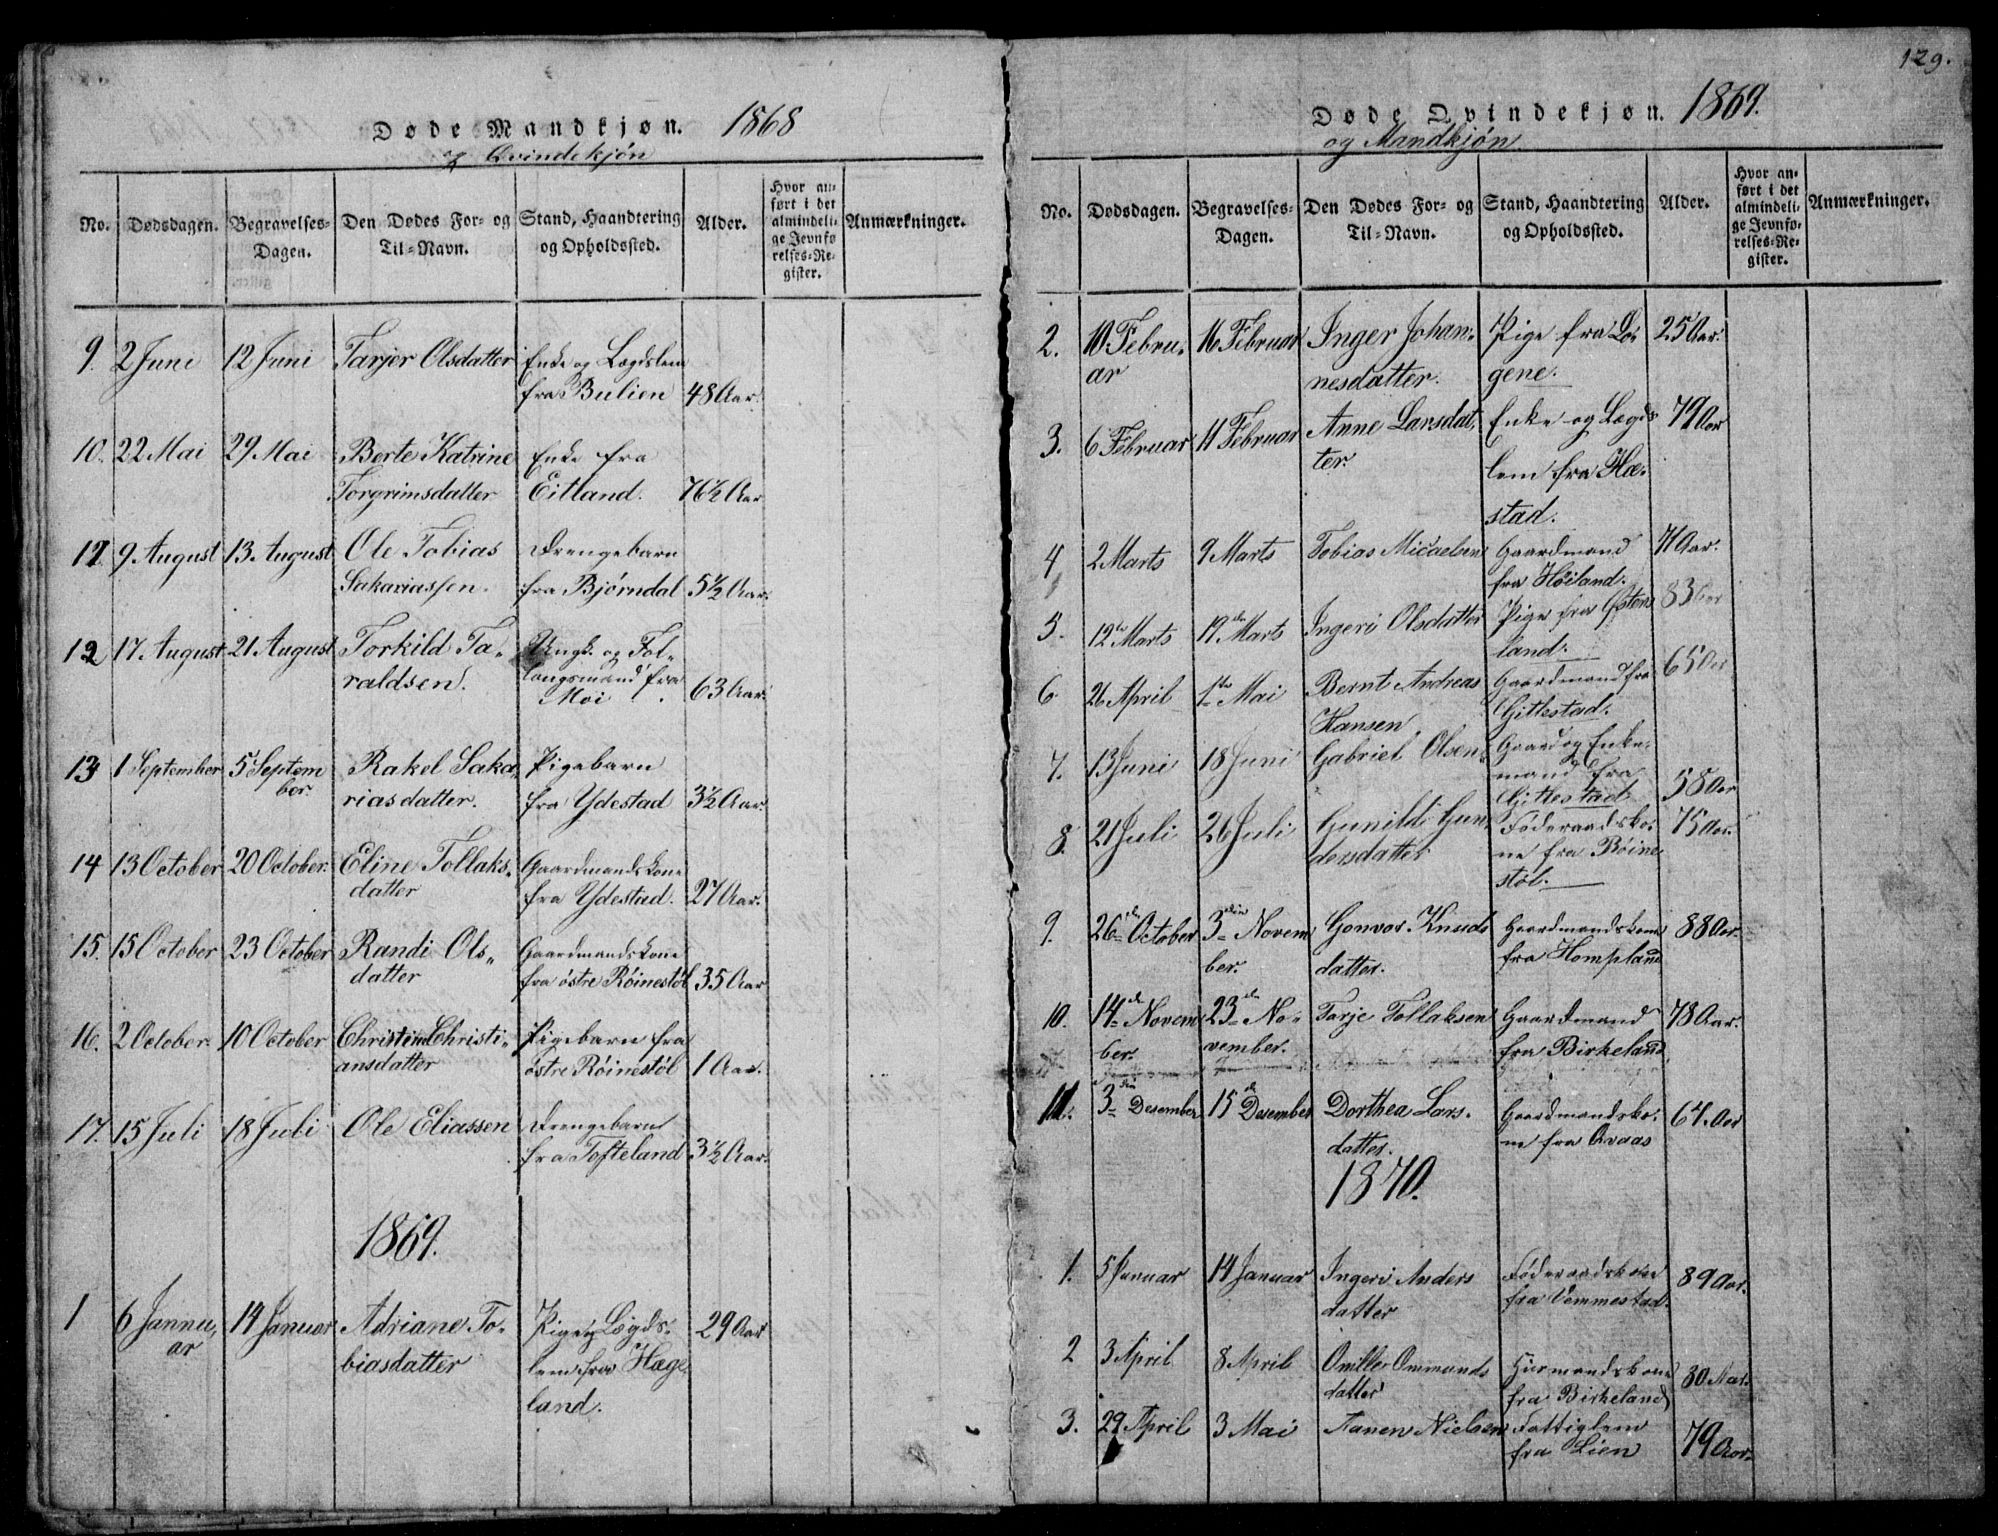 Døde Mandkjøn. 1868
og Qvindekjön
No. Dødsdagen. Begravelses-Dagen. Den Dødes For- og Til-Navn. Stand, Haandtering og Opholdssted. Alder. Hvor anført i det almindelige Jevnførelses-Register. Anmærkninger.
9. 2 Juni 12 Juni Tarjer Olsdatter Enke og Lægdslem
fra Bulien 48 Aar.
10. 22 Mai 29 Mai Berte Katrine Enke fra
Torgrimsdatter Eitland. 76½ Aar
11. 9. August 13. August Ole Tobias Drengebarn
Sakariassen. fra Bjørndal 5½ Aar.
12 17. August 21 August Torkild Ta-
raldsen. Ungk. og Fol-
langsmand fra
Moi 63 Aar.
13 1 September 5 Septem
ber. Rakel Saka
riasdatter. Pigebarn
fra Ydestad 3½ Aar.
14 13 October 20 October. Eline Tollaks-
datter Gaardmandskone
fra Ydestad. 27 Aar.
15. 15 October 23 October Randi Ols-
datter Gaardmandskone
fra østre Röinestöl 35 Aar
16. 2 October. 10 October Christine Christi-
ansdatter Pigebarn fra
østre Röinestöl 1 Aar.
17. 15 Juli 18 Juli Ole Eliassen Drengebarn
fra Tofteland 3½ Aar.
1869.
1 6 Januu-
ar 14 Januar Adriane To-
biasdatter Pige og Lægds-
lem fra Hæge
land. 29 Aar
129.
Døde Qvindekjøn. 1869.
og Mandkjön
No. Dødsdagen. Begravelses-Dagen. Den Dødes For- og Til-Navn. Stand, Haandtering og Opholdssted. Alder. Hvor anført i det almindelige Jevnførelses-Register. Anmærkninger.
2. 10 Febru-
ar 16 Februar Inger Johan-
nesdatter. Pige fra Lö-
gene. 25 Aar.
3. 6 Februar 11 Februar Anne Larsdat
ter. Enke og Lægds
lem fra Hæ-
stad. 79 Aar
4 2 Marts 9 Marts Tobias Micaelsen Gaardmand
fra Höiland. 71 Aar.
5. 12te Marts 19de Marts Ingeri Olsdatter Pige fra Østen
land. 83 Aar
6 26 April 1te Mai Bernt Andreas
Hansen Gaardmand fra
Gittestad. 65 Aar
7. 13 Juni 18 Juni Gabriel Olsen Gaard og Enke-
mand fra
Gittestad 58 Aar
8. 21 Juli 26 Juli Gunild Gun
dersdatter Föderaadsko-
ne fra Röine
stöl. 75 Aar.
9. 26de October 3die Novem
ber. Gonvor Knuds
datter. Gaardmandskone
fra Hompland 88 Aar.
10. 14de Novem
ber. 23de No-
vember. Tarje Tollaksen Gaardmand
fra Birkeland 78 Aar.
11. 3die Desember 15de Desember Dorthea Lars-
datter. Gaardmandsko-
ne fra Qvaas 64. Aar
1870.
1. 5 Januar 14 Januar Ingeri Anders
datter Föderaadskone
fra Vemmestad. 89 Aar.
2 3 April 8 April Ommunds
datter Huusmandskone
fra Birkeland 80 Aar.
3. 29 April 3 Mai Aanen Nielsen Fattiglem
fra Lien 79 Aar.